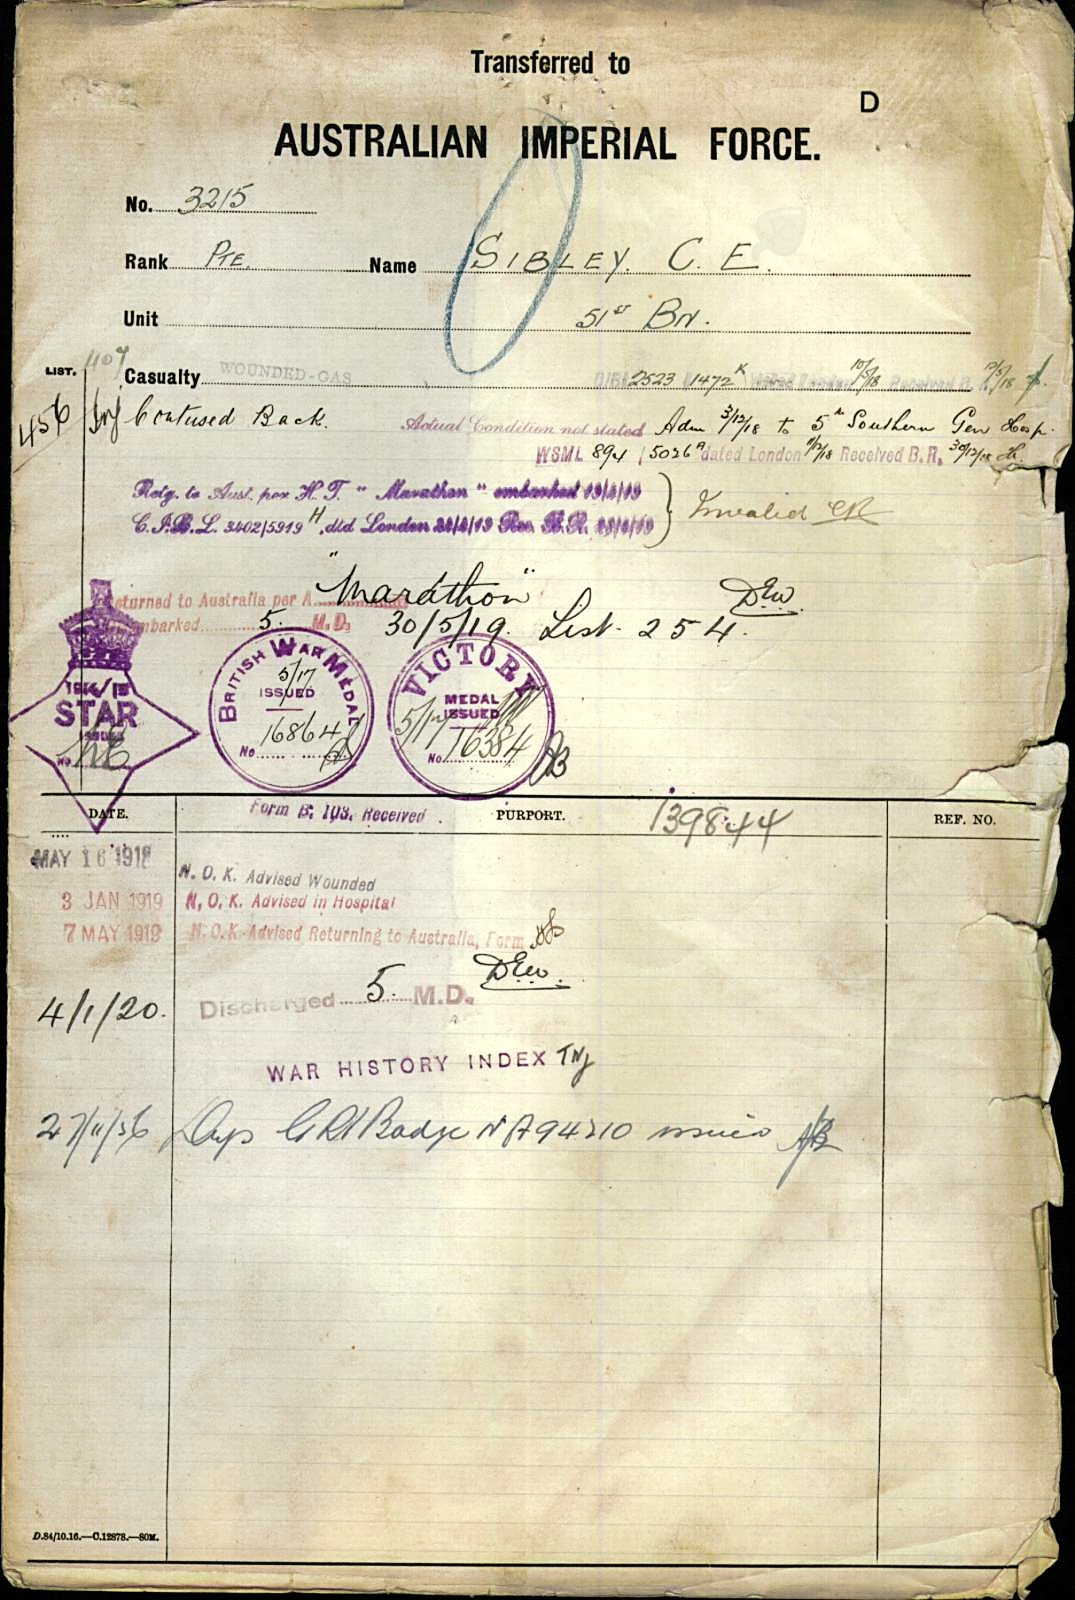 Transferred to
D
AUSTRALIAN IMPERIAL FORCE.
No. 3215
Rank PTE. Name SIBLEY. C. E.
Unit 51st BN.
LIST. 407 Casualty WOUNDED-GAS 2523 1472 K 10/5/18 Received B.R. 12/5/18
456 Inj Contused Back. Actual Condition not stated Adm 3/12/18 to 5th Southern Gen Hosp.
WSML 894 5026 A dated London 11/12/18 Received B.R. 30/12/18
Retg. to Aust. per H.T. "Marathon" embarked
C.I.B.L. 3402/5919 H dtd London
Invalid
Returned to Australia per "Marathon" DEW.
Disembarked 5. M.D. 30/5/19. List. 254.
1914/15
STAR
ISSUED
No. NE
BRITISH WAR MEDAL
5/17
ISSUED
No. 16864
VICTORY
MEDAL
ISSUED
5/17
No. 16384
DATE. Form B. 103. Received. PURPORT. 139844 REF. NO.
MAY 16 1918 N.O.K. Advised Wounded
3 JAN 1919 N.O.K. Advised in Hospital
7 MAY 1919 N.O.K. Advised Returning to Australia, Form
4/1/20. Discharged 5. M.D. DEW.
WAR HISTORY INDEX
27/11/36 Badge No A94210 issued
D.84/10.16.—C.12878.—80M.